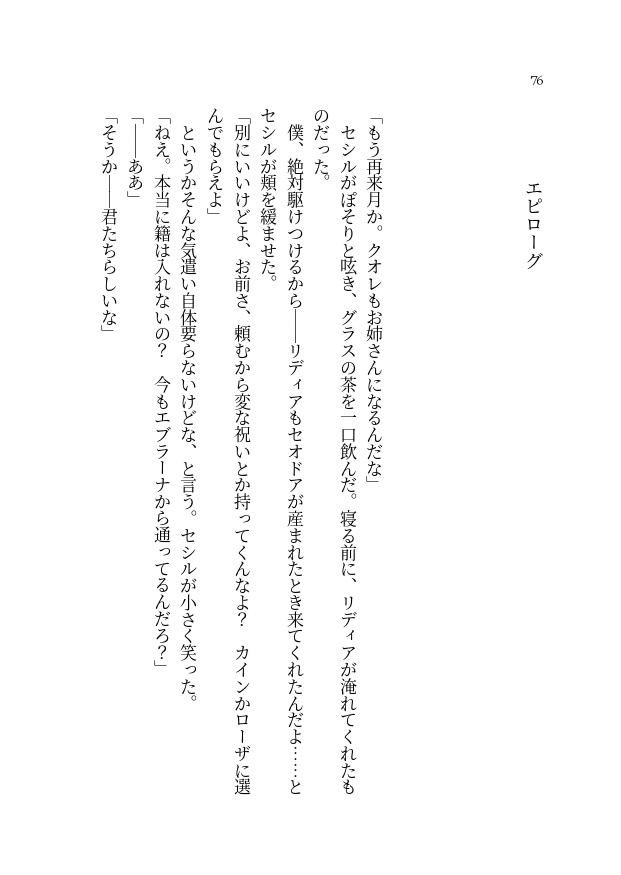 76
エピローグ
「もう再来月か。クオレもお姉さんになるんだな」
セシルがぽそりと呟き、グラスの茶を一口飲んだ。寝る前に、リディアが淹れてくれたも
のだった。
僕、絶対駆けつけるから――リディアもセオドアが産まれたとき来てくれたんだよ……と
セシルが頬を緩ませた。
「別にいいけどよ、お前さ、頼むから変な祝いとか持ってくんなよ？　カインかローザに選
んでもらえよ」
というかそんな気遣い自体要らないけどな、と言う。セシルが小さく笑った。
「ねえ。本当に籍は入れないの？　今もエブラーナから通ってるんだろ？」
「――ああ」
「そうか――君たちらしいな」